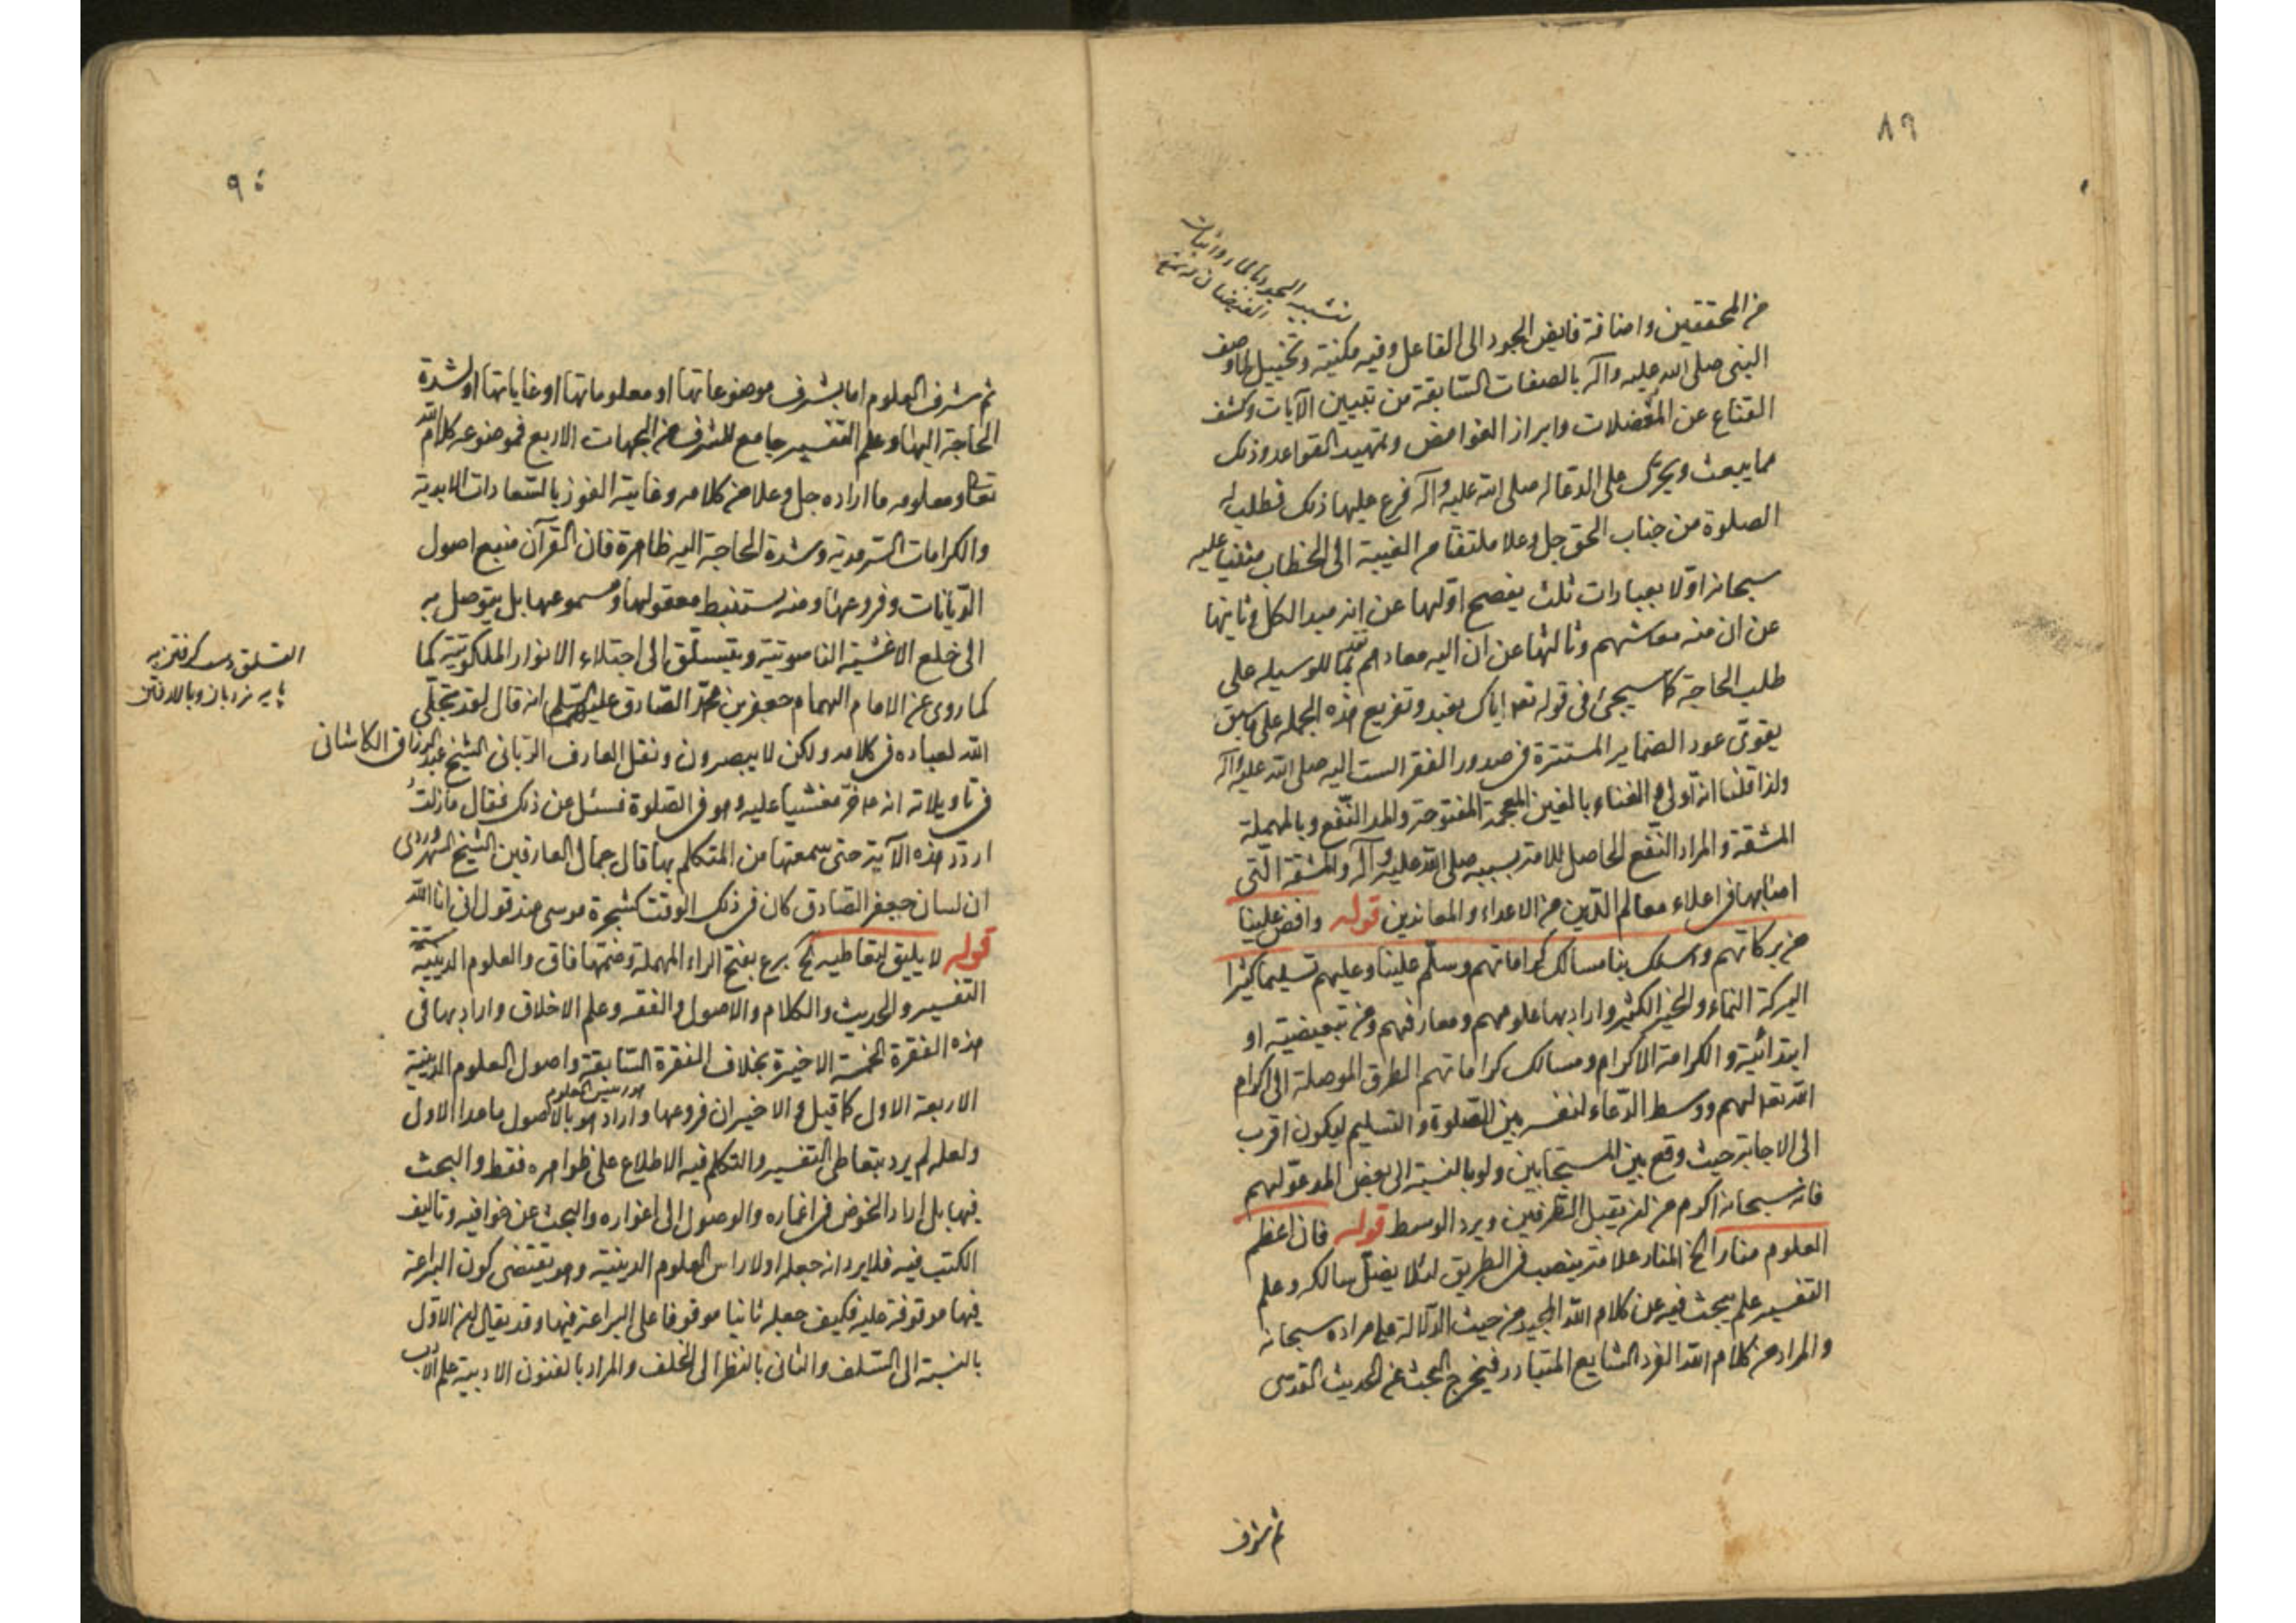 ٨٩
تشبيه الجود بالماء واثبات
الفيضان له تخييل
من المحققين واضافة فايض الجود الى الفاعل وفيه مكنية وتخييل ولما وصف
النبي صلى الله عليه وآله بالصفات السّابقة من تبيين الآيات وكشف
القناع عن المُعضلات وابراز الغوامض وتمهيد القواعد وذلك
مما يبعث ويجرّى على الدعا له صلى الله عليه وآله فرع عليها ذلك فطلب له
الصلوة من جناب الحق جل وعلا ملتفتا من الغيبة الى الخطاب مثنيا عليه
سبحانه اوّلا بعبارات ثلث يفصح اوّلها عن انه مبدا الكل وثانيها
عن ان منه معاشهم وثالثها عن ان اليه معادهم تقديما للوسيله على
طلب الحاجة كما سيجئ في قوله تعالى اياك نعبد وتفريع هذه الجمله على ما سبق
يقوّى عود الضماير المستترة في صدور الفقر الست اليه صلى الله عليه وآله
ولذا قلنا انه اولى والغناء بالغين المعجمة المفتوحة والمد النّفع وبالمهملة
المشقة والمراد النّفع الحاصل للامة بسببه صلى الله عليه وآله والمشقة الّتى
اصابها في اعلاء معالم الدّين من الاعداء والمعاندين قوله وافض علينا
من بركاتهم واسلك بنا مسالك كراماتهم وسلّم علينا وعليهم تسليما كثيرا
البركة النماء والخير الكثير واراد بها علومهم ومعارفهم ومن تبعيضية او
ابتدائية والكرامة الاكرام ومسالك كراماتهم الطرق الموصلة الى اكرام
الله تعالى لهم ووسط الدّعاء لنفسه بين الصّلوة والتسليم ليكون اقرب
الى الاجابة حيث وقع بين المستجابين ولو بالنسبة الى بعض المدعوّ لهم
فانه سبحانه اكرم من ان يقبل الطرفين ويرد الوسط قوله فان اعظم
العلوم منارا الخ المنار علامة ينصب في الطريق لئلا يضلّ سالكه وعلم
التفسير علم يبحث فيه عن كلام الله المجيد من حيث الدّلالة على مراده سبحانه
والمراد من كلام الله الفرد الشايع المتبادر فيخرج البحث عن الحديث القدسى
ثم شرف
٩٠
ثم شرف العلوم اما بشرف موضوعاتها او معلوماتها او غاياتها او لشدة
الحاجة اليها وعلم التفسير جامع للشرف من الجهات الاربع فموضوعه كلام الله
تعالى ومعلومه ما اراده جل وعلا من كلامه وغايته الفوز بالسّعادات الابدية
والكرامات السّرمدية وشدة الحاجة اليه ظاهرة فان القرآن منبع اصول
الدّيانات وفروعها ومنه يستنبط معقولها ومسموعها بل يتوصل به
الى خلع الاغشية الناسوتية ويتسلّق الى اجتلاء الانوار الملكوتية كما
كما روى عن الامام الهمام جعفر بن محمّد الصّادق عليه السّلم انه قال لقد تجلّى
الله لعباده في كلامه ولكن لا يبصرون ونقل العارف الرّبانى الشيخ عبد الرزاق الكاشانى
في تاويلاته انه ع خرّ مغشيا عليه وهو في الصّلوة فسئل عن ذلك فقال ما زلتُ
اردّد هذه الآية حتى سمعتها من المتكلم بها قال جمال العارفين الشيخ السهروردى
ان لسان جعفر الصّادق كان في ذلك الوقت كشجرة موسى عند قول انى انا الله
قوله لا يليق لتعاطيه الخ برع بفتح الراء المهملة وضمّها فاق والعلوم الدينية ستة
التفسير والحديث والكلام والاصول والفقه وعلم الاخلاق واراد بها في
هذه الفقرة الخمسة الاخيرة بخلاف الفقرة السّابقة واصول العلوم الدينية
الاربعة الاول كما قيل والاخيران فروعها واراد هو بالاصول ما عدا الاول
ولعله لم يرد بتعاطى التفسير والتكلم فيه الاطلاع على ظواهره فقط والبحث
فيها بل اراد الخوض في اغماره والوصول الى اغواره والبحث عن خوافيه وتاليف
الكتب فيه فلا يرد انه جعله اولا راس العلوم الدينية وهو يقتضى كون البراعة
فيها موقوفة عليه فكيف جعله ثانيا موقوفا على البراعة فيها وقد يقال ان الاوّل
بالنسبة الى السّلف والثانى بالنظر الى الخلف والمراد بالفنون الادبية علم الادب
التسلق
پايه نردبان وبالا رفتن